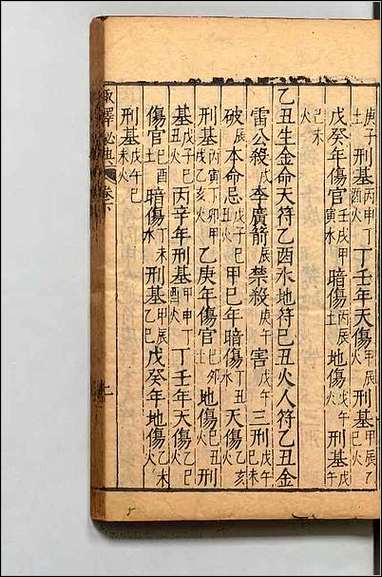 庚子土 刑基丙申申酉火 丁壬年天傷甲辰火 刑基甲辰乙
戊癸年傷官壬戌甲寅水 暗傷丙辰土 地傷戊午火 刑基戊午
己未火
乙丑生金命天符乙酉水地符己丑火人符乙丑金
雷公殺戊辰 李廣箭庚辰 禁殺庚午 害己未 三刑戊午
破 本命忌戊子己丑火 甲己年暗傷丁丑 天傷乙亥火
刑基丙寅丁卯甲戌乙亥火 乙庚年傷官 地傷己丑火 刑
基戊子己丑火 丙辛年刑基甲申申酉 丁壬年天傷乙巳火
傷官己酉土 暗傷戊申 刑基甲辰乙巳火 戊癸年地傷己未火
刑基戊午己未火
取擇秘典 卷下